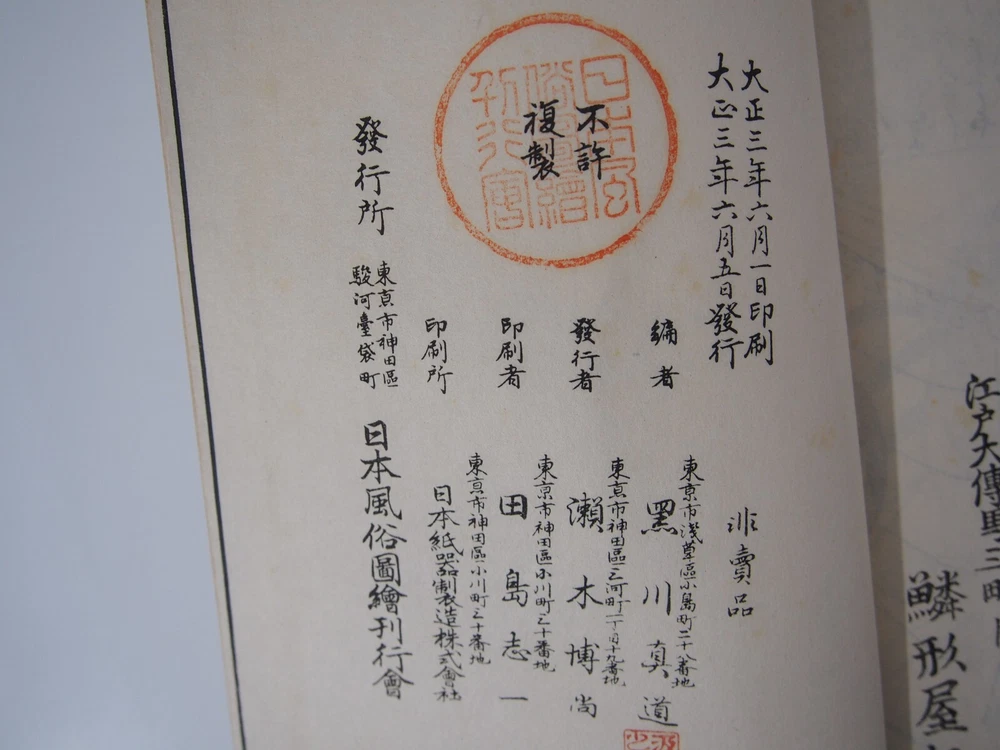 江戸大傳馬三町
鱗形屋
大正三年六月一日印刷
大正三年六月五日發行
非賣品
編者
東京市淺草區小島町二十八番地
黑川真道
發行者
東亰市神田區三河町一丁目十九番地
瀬木博尚
印刷者
東京市神田區小川町三十番地
田島志一
印刷所
東亰市神田區小川町三十番地
日本紙器製造株式會社
不許
複製
日本風
俗圖繪
刊行會
發行所
東亰市神田區
駿河臺袋町
日本風俗圖繪刊行會